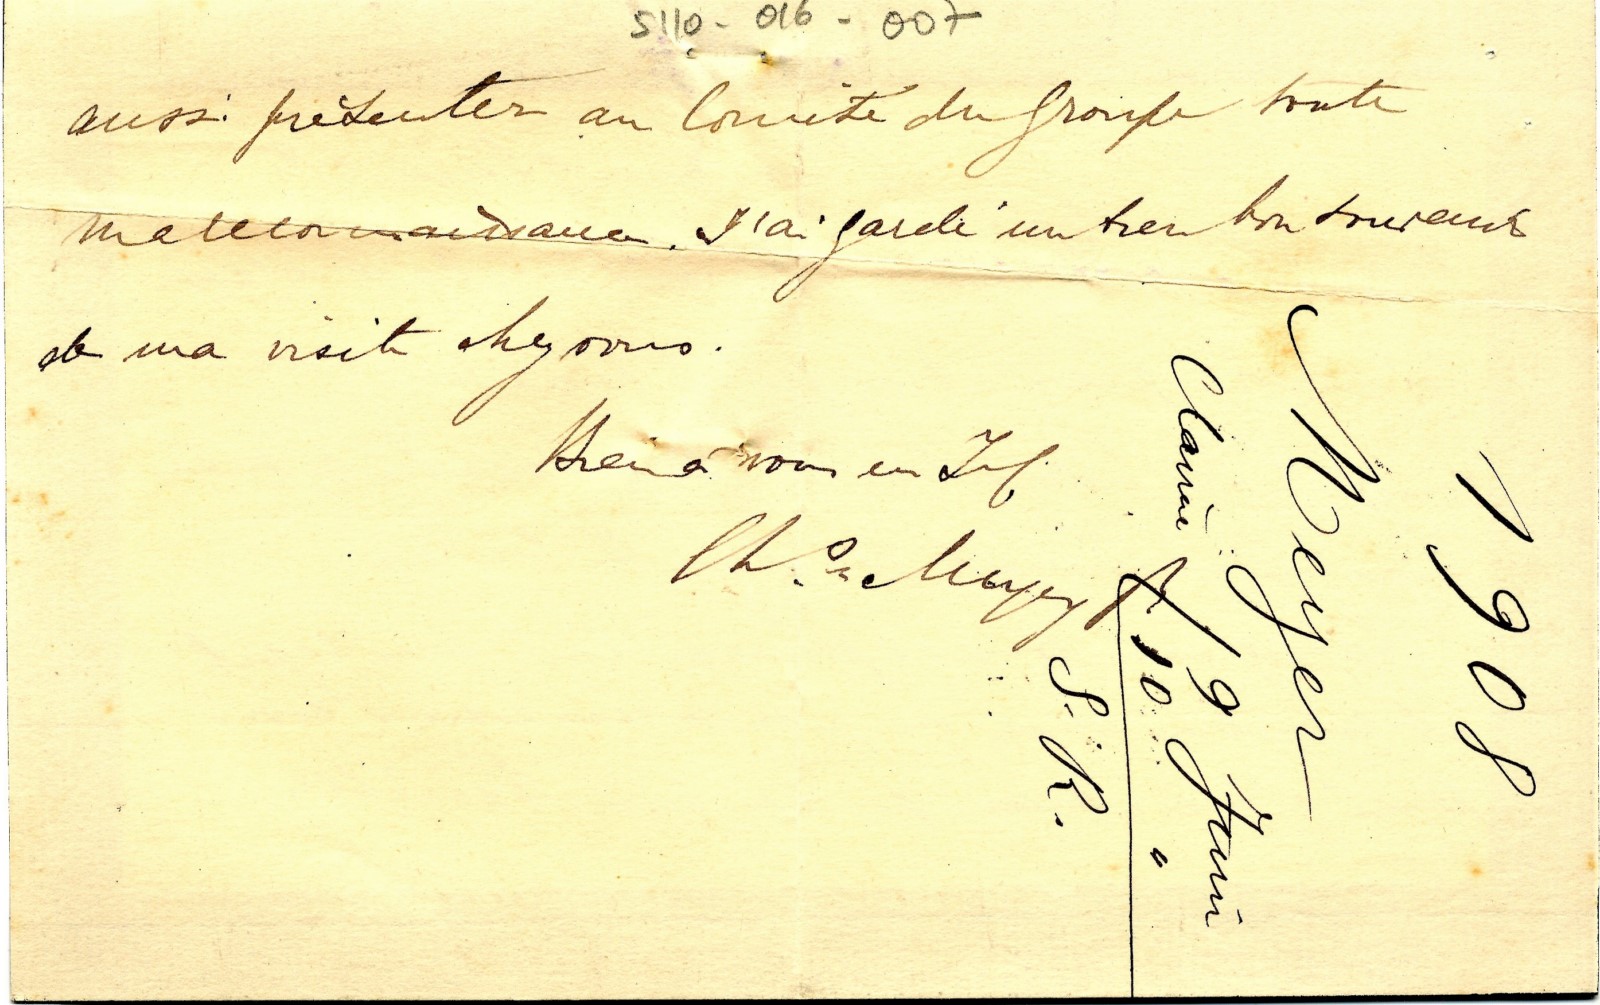 5110-016-007
aussi présenter au Comité du Groupe toute
ma reconnaissance. J'ai gardé un bien bon souvenir
de ma visite chez vous.
Bien à vous en
Meyer
1908
Meyer
19 Juin
10
S. R.